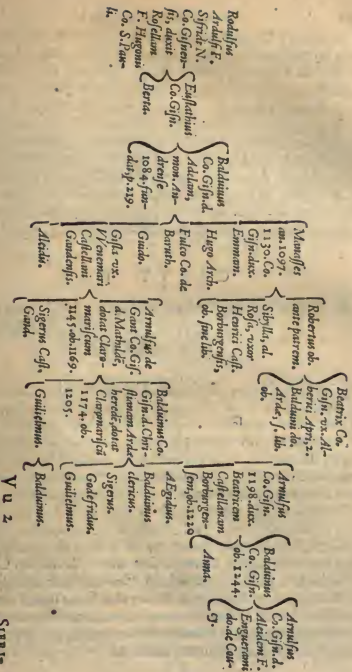 Rodulfus
Ardulfi F.
Sifridi N.
Co. Gisnen-
sis, duxit
Rosellam
F. Hugonis
Co. S. Pau-
li.
Eustathius
Co. Gisn.
Berta.
Balduinus
Co. Gisn. d.
Adelam,
mon. An-
drense
1084. fun-
dat. p. 219.
Manasses
an. 1097.
1130. Co.
Gisn. dux.
Emmam.
Hugo Arch.
Fulco Co. de
Baruth.
Guido.
Gisla vx.
VVenemari
Castellani
Gandensis.
Aleidis.
Robertus ob.
ante patrem.
Sibylla, al.
Rosa, vxor
Henrici Cast.
Borburgensis,
ob. sine lib.
Arnulfus de
Gant Co. Gis.
d. Mathildē,
dotat Clara-
mariscum
1145. ob. 1169.
Sigerus Cast.
Gand.
Beatrix Co.
Gisn. vx. Al-
berici Apri, 2.
Balduini do.
Ardæ, s. lib.
ob.
Balduinus Co.
Gisn. d. Chri-
stianam Ardæ
heredē, dotat
Claromariscū
1174. ob.
1205.
Guilielmus.
Arnulfus
Co. Gisn.
1198. dux.
Beatricem
Castellanam
Borburgen-
sem, ob. 1220
AEgidius.
Balduinus
clericus.
Sigerus.
Godefridus.
Guilielmus.
Balduinus.
Balduinus
Co. Gisn.
ob. 1244.
Anna.
Arnulfus
Co. Gisn. d.
Aleidem F.
Enguerani
do. de Cou-
cy.
Vu 2